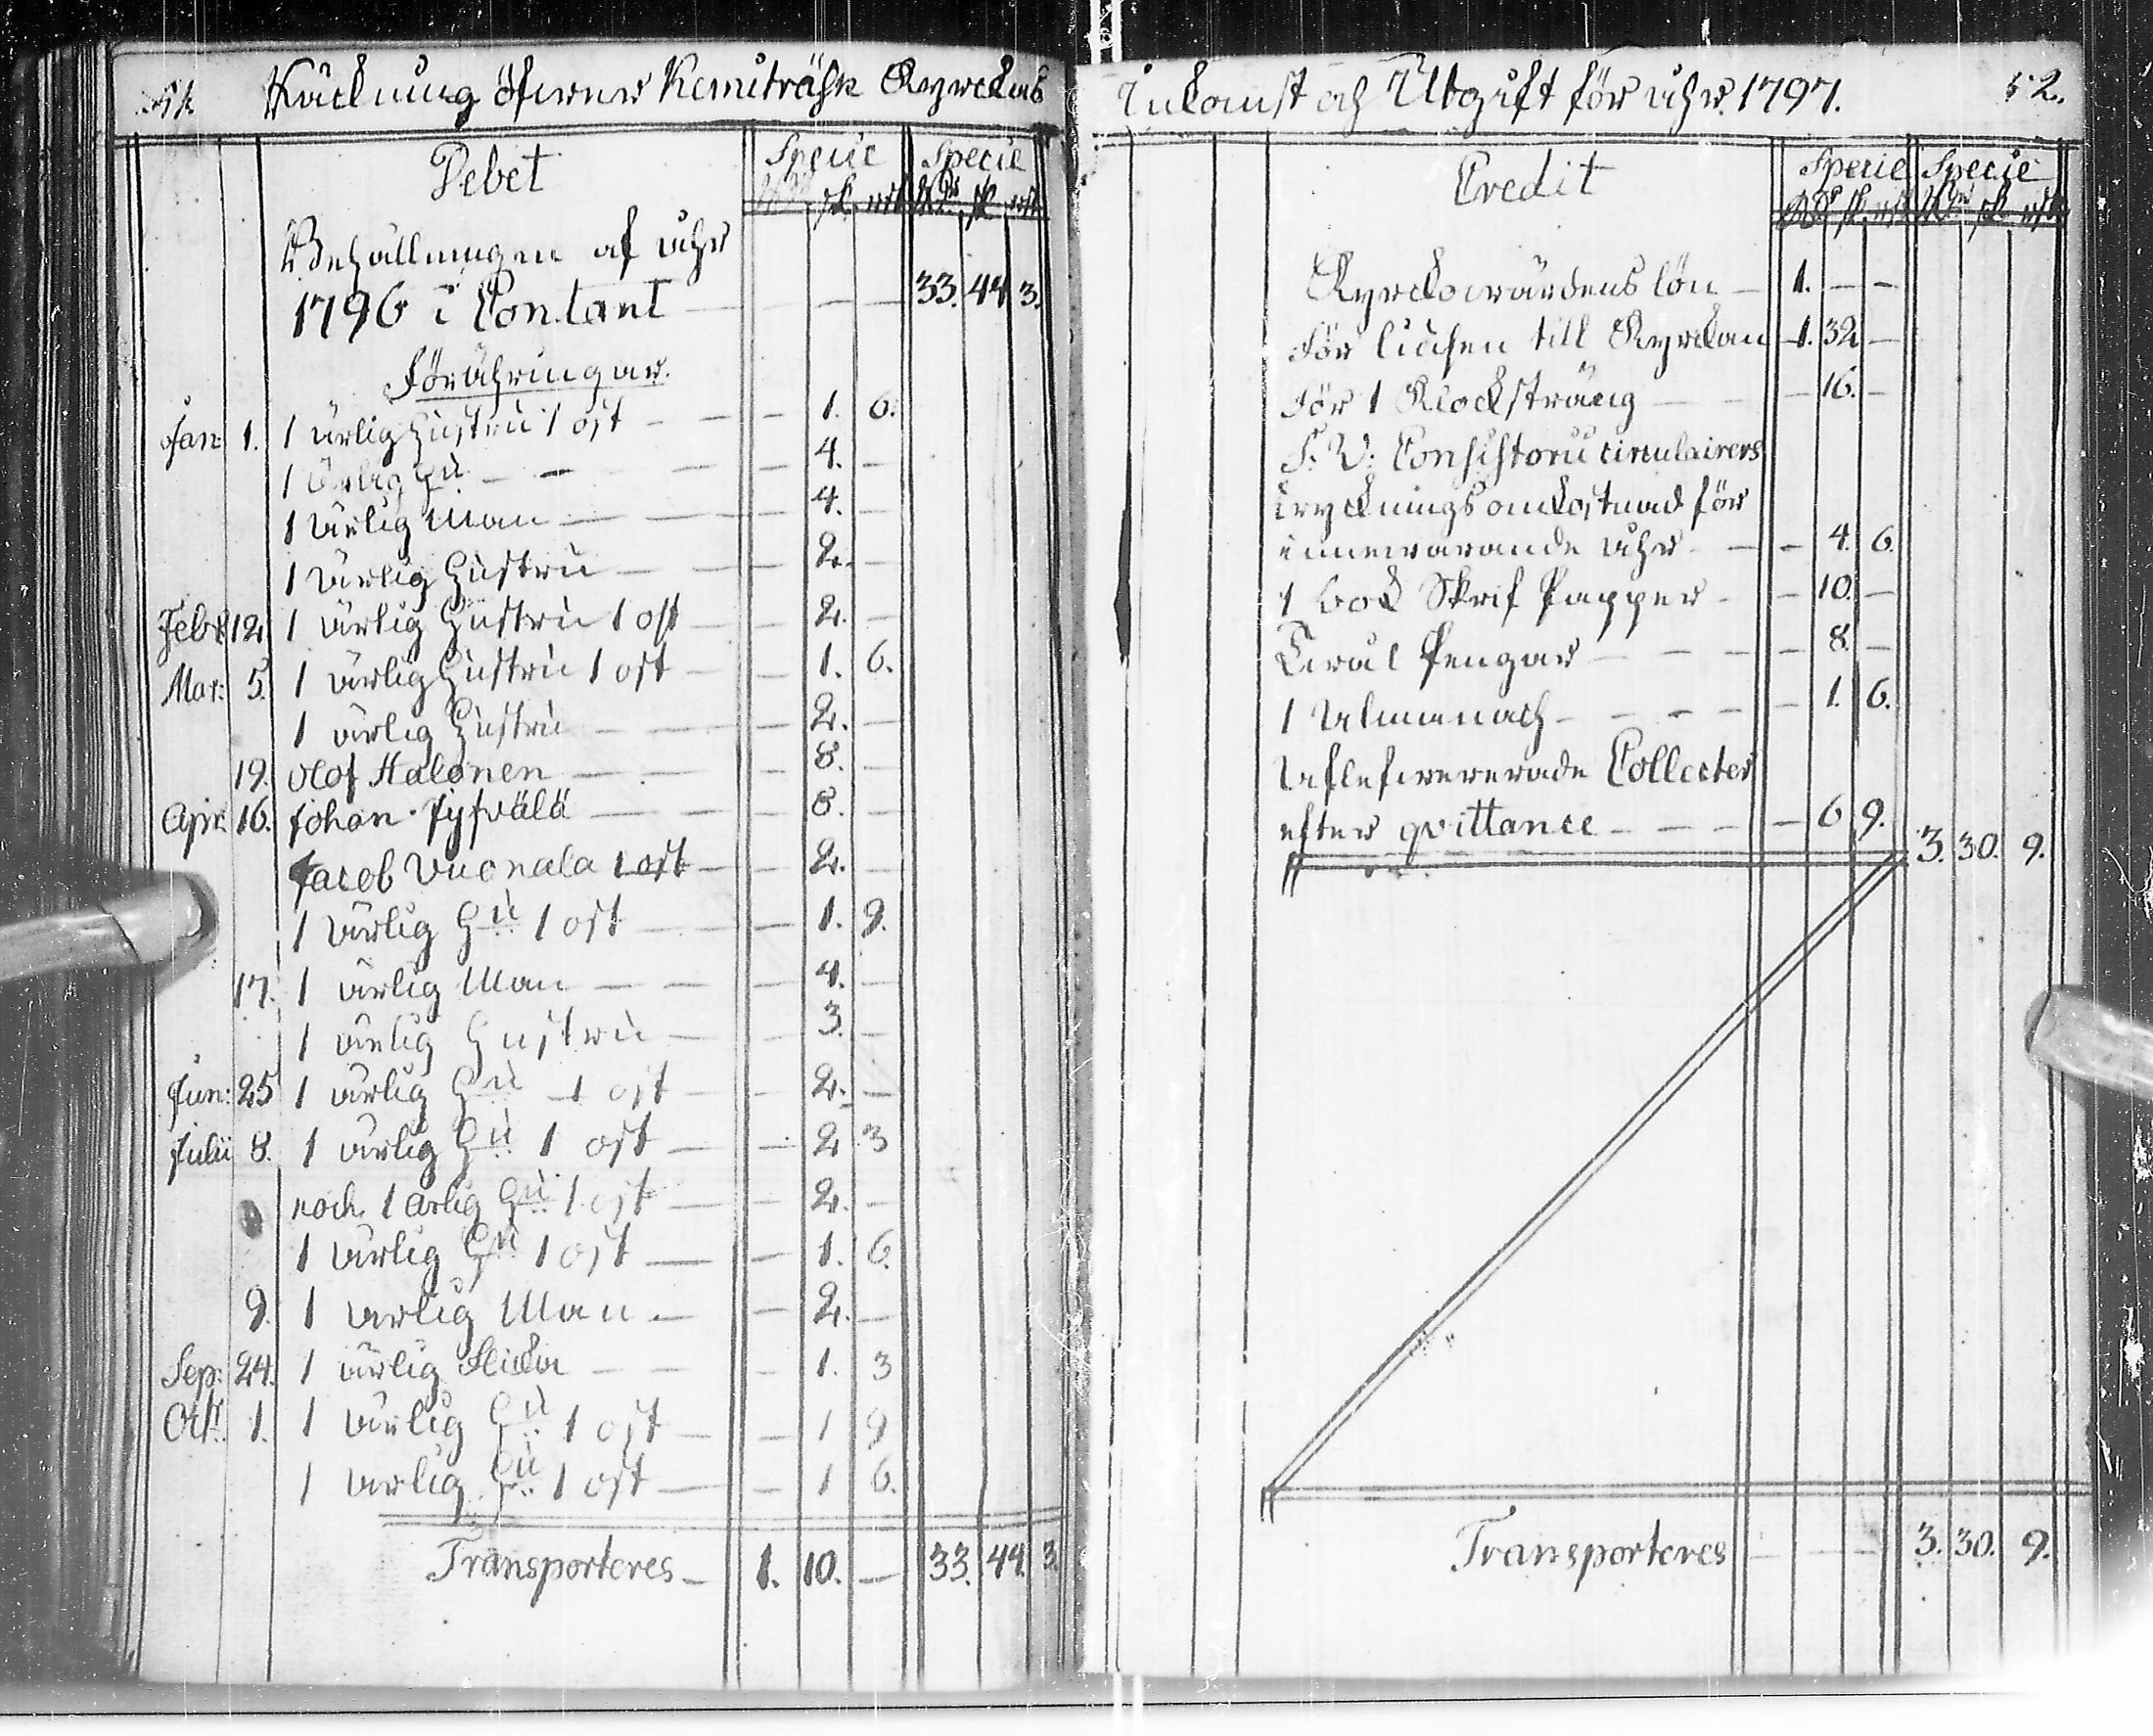 51. Räckning öfwer Kemiträsk Kyrckas
Debet Specie Specie
Rd. sk. rst. Rd. sk. rst.
Behållningen af åhr
1796 i Contant — — — 33. 44. 3.
Förähringar.
Jan: 1. 1 ärlig Hustru 1 ost — — 1. 6.
1 ärlig Hu — — — 4. —
1 ärlig Man — — — 4. —
1 ärlig Hustru — — — 2. —
Febr 12. 1 ärlig Hustru 1 ost — — 2. —
Mar: 5. 1 ärlig Hustru 1 ost — — 1. 6.
1 ärlig Hustru — — — 2. —
19. Olof Halonen — — — 8. —
Apr: 16. Johan Pyfvälä — — — 8. —
Jacob Vuonala 1 ost — — 2. —
1 ärlig Hu 1 ost — — 1. 9.
17. 1 ärlig Man — — — 4. —
1 ärlig Hustru — — 3. —
Jun: 25 1 ärlig Hu 1 ost — — 2. —
Julii 8. 1 ärlig Hu 1 ost — — 2 3
noch 1 ärlig Hu 1 ost — — 2. —
1 ärlig Hu 1 ost — — 1. 6.
9. 1 ärlig Man — — 2. —
Sep: 24. 1 ärlig Flicka — — — 1. 3
Oct: 1. 1 ärlig Hu 1 ost — — 1 9
1 ärlig Hu 1 ost — — 1 6.
Transporteres — 1. 10. — 33. 44. 3.
Inkomst och Utgift för åhr 1797. 52.
Credit Specie Specie
Rd. sk. rst. Rd. sk. rst.
Kyrckowärdens lön — 1. — —
För liusen till Kyrckan 1. 32 —
För 1 Klocksträng — — — 16. —
S: V: Consistorii circulairers
tryckningsomkostnad för
innewarande åhr — — 4. 6.
1 bok Skrif Papper — — 10. —
Tiväl Pengar — — — — 8. —
1 Almanach — — — — 1. 6.
Aflefwererade Collecter
efter qvittance — — — — 6 9. 3. 30. 9.
Transporteres — — — 3. 30. 9.